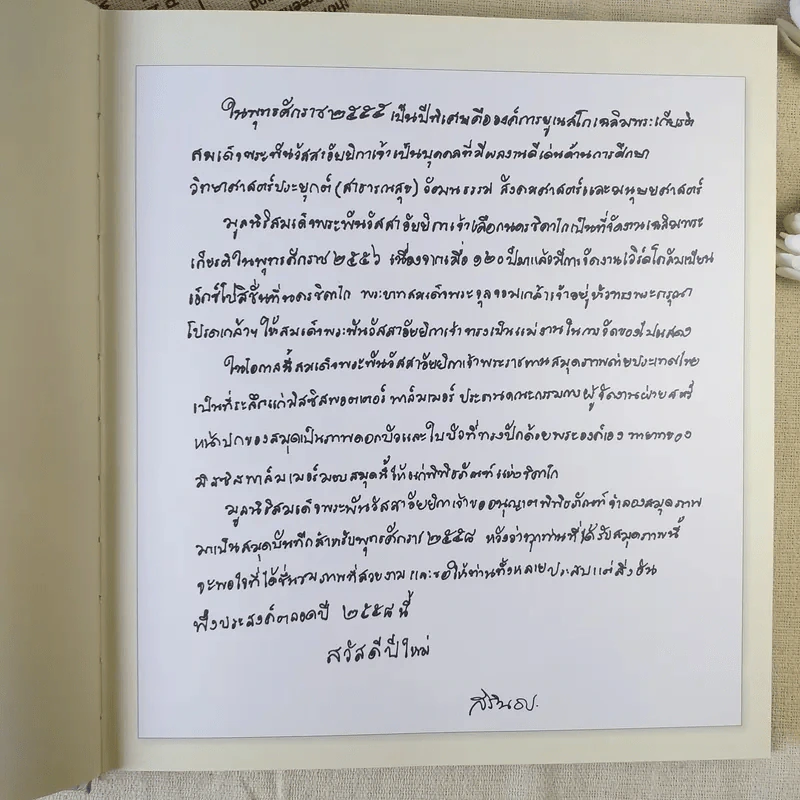 ในพุทธศักราช ๒๕๕๕ เป็นปีพิเศษคือองค์การยูเนสโกเฉลิมพระเกียรติ
สมเด็จพระพันวัสสาอัยยิกาเจ้าเป็นบุคคลที่มีผลงานดีเด่นด้านการศึกษา
วิทยาศาสตร์ประยุกต์ (สาธารณสุข) วัฒนธรรม สังคมศาสตร์และมนุษยศาสตร์
มูลนิธิสมเด็จพระพันวัสสาอัยยิกาเจ้าเลือกนครชิคาโกเป็นที่จัดงานเฉลิมพระ
เกียรติในพุทธศักราช ๒๕๕๖ เนื่องจากเมื่อ ๑๒๐ ปีมาแล้วมีการจัดงานเวิร์ลโคลัมเบียน
เอ็กซ์โปสิชั่นที่นครชิคาโก พระบาทสมเด็จพระจุลจอมเกล้าเจ้าอยู่หัวทรงพระกรุณา
โปรดเกล้าฯ ให้สมเด็จพระพันวัสสาอัยยิกาเจ้าทรงเป็นแม่งานในการจัดของไปแสดง
ในโอกาสนี้สมเด็จพระพันวัสสาอัยยิกาเจ้าพระราชทานสมุดภาพถ่ายประเทศไทย
เป็นที่ระลึกแก่มิสซิสพอตเตอร์ พาล์มเมอร์ ประธานคณะกรรมการผู้จัดงานฝ่ายสตรี
หน้าปกของสมุดเป็นภาพดอกบัวและใบบัวที่ทรงปักด้วยพระองค์เอง ทายาทของ
มิสซิสพาล์มเมอร์มอบสมุดนี้ให้แก่พิพิธภัณฑ์แห่งชิคาโก
มูลนิธิสมเด็จพระพันวัสสาอัยยิกาเจ้าขออนุญาตพิพิธภัณฑ์จำลองสมุดภาพ
มาเป็นสมุดบันทึกสำหรับพุทธศักราช ๒๕๕๘ หวังว่าทุกท่านที่ได้รับสมุดภาพนี้
จะพอใจที่ได้ชื่นชมภาพที่สวยงาม และขอให้ท่านทั้งหลายประสบแต่สิ่งอัน
พึงประสงค์ตลอดปี ๒๕๕๘ นี้
สวัสดีปีใหม่
สิรินธร.